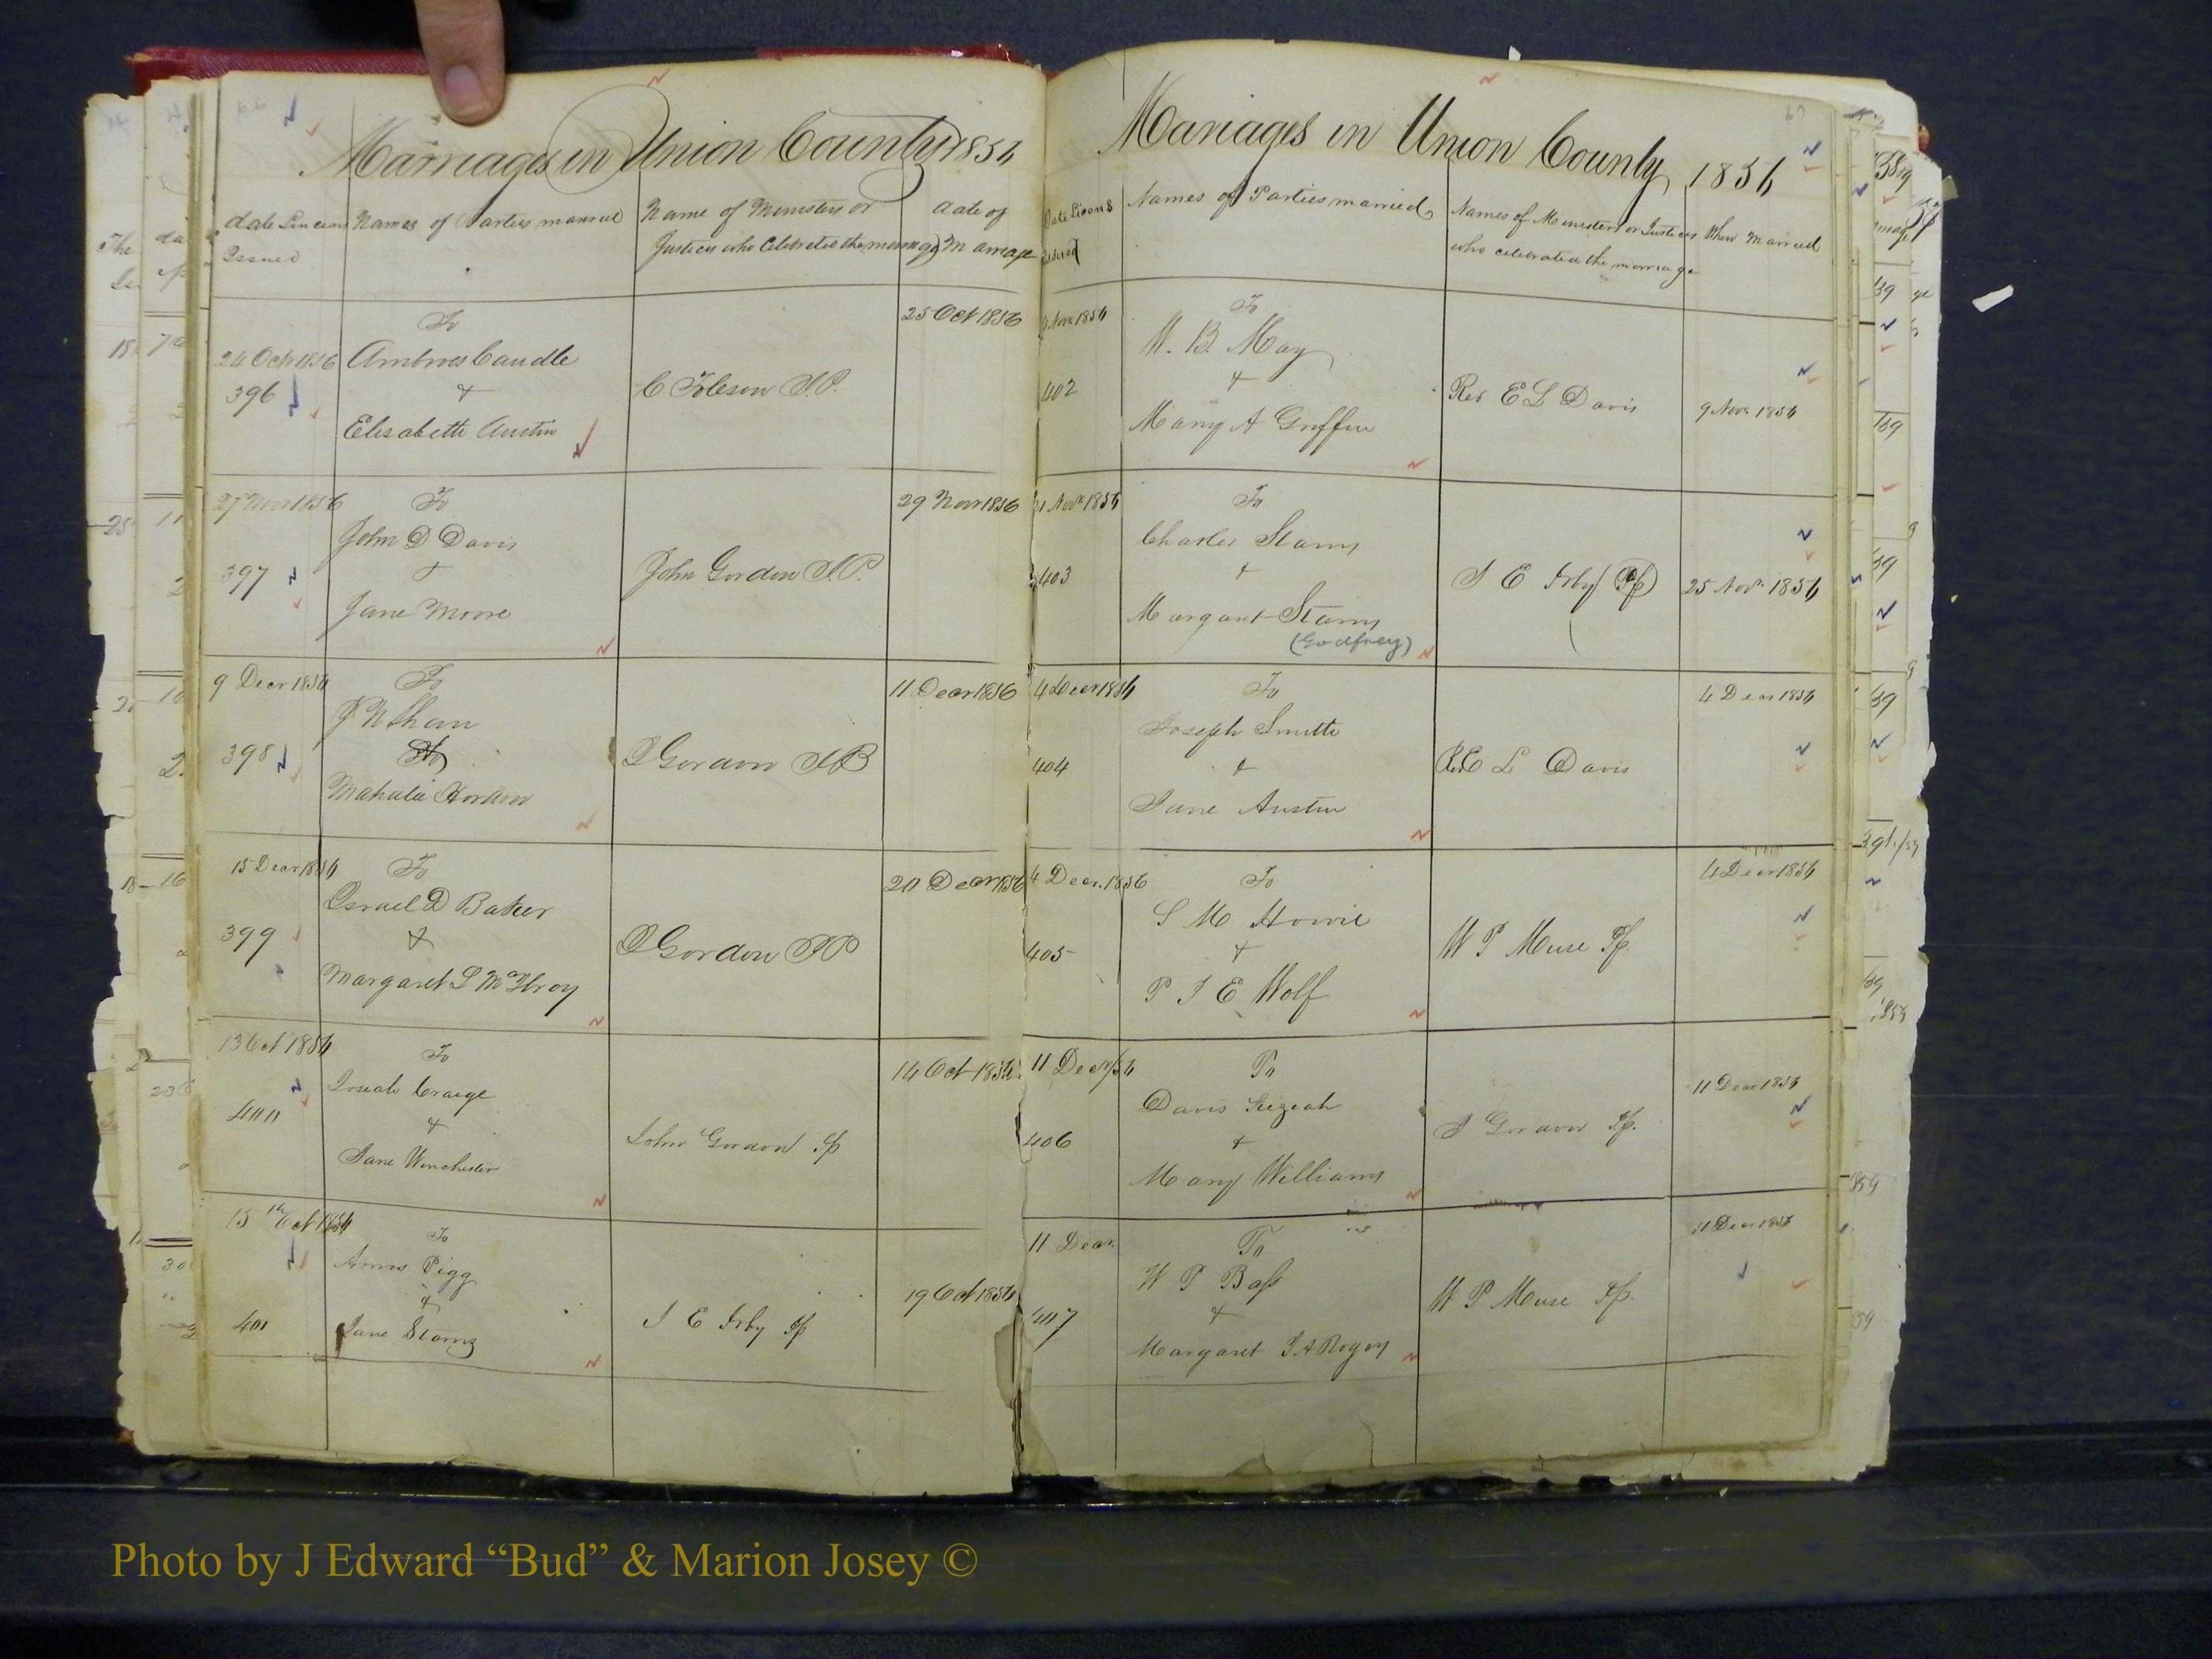 Marriages in Union County 1856
date Lincens Issued
Names of Parties married
Name of Ministers or
Justices who Celebrated the marriage
date of
Marriage
24 Oct 1856
396
To
Ambros Caudle
&
Elisabeth Austin
25 Oct 1856
27 Nov 1856
397
To
John D Davis
&
Jane Moore
John Gordon J.P.
29 Nov 1856
9 Decr 1856
398
To
Mahala
J Gordon J P
11 Decr 1856
15 Decr 1856
399
To
Israel D Baker
&
Margaret L McIlroy
J Gordon J P
20 Decr 1856
13 Oct 1856
400
To
Josiah Craige
&
Jane Winchester
John Gordon Jp
14 Oct 1856
15th Oct 1856
401
To
Amos Pigg
&
Jane Starns
J E Irby Jp
19 Oct 1856
Mariages in Union County 1856
Date Licens
Issued
Names of Parties married
Names of Ministers or Justices
who celebrated the marriage
When Married
Nov 1856
402
To
M. B. May
&
Mary A Griffin
Rev E L Davis
9 Nov. 1856
Nov 1856
403
To
Charles Starns
&
Margaret Starns
(Godfrey)
J E Irby (Jp)
25 Nov. 1856
4 Decr 1856
404
To
Joseph Smith
&
Jane Austin
Rev E L Davis
4 Decr 1856
4 Decr. 1856
405
To
S M Howie
&
P J E Wolf
W P Muse Jp.
4 Decr 1856
11 Decr/56
406
To
Davis Kezeah
&
Mary Williams
J Gordon Jp.
11 Decr 1856
11 Decr.
407
To
W P Bass
&
Margaret J A Rogers
W P Muse Jp.
11 Decr 1856
Photo by J Edward “Bud” & Marion Josey ©